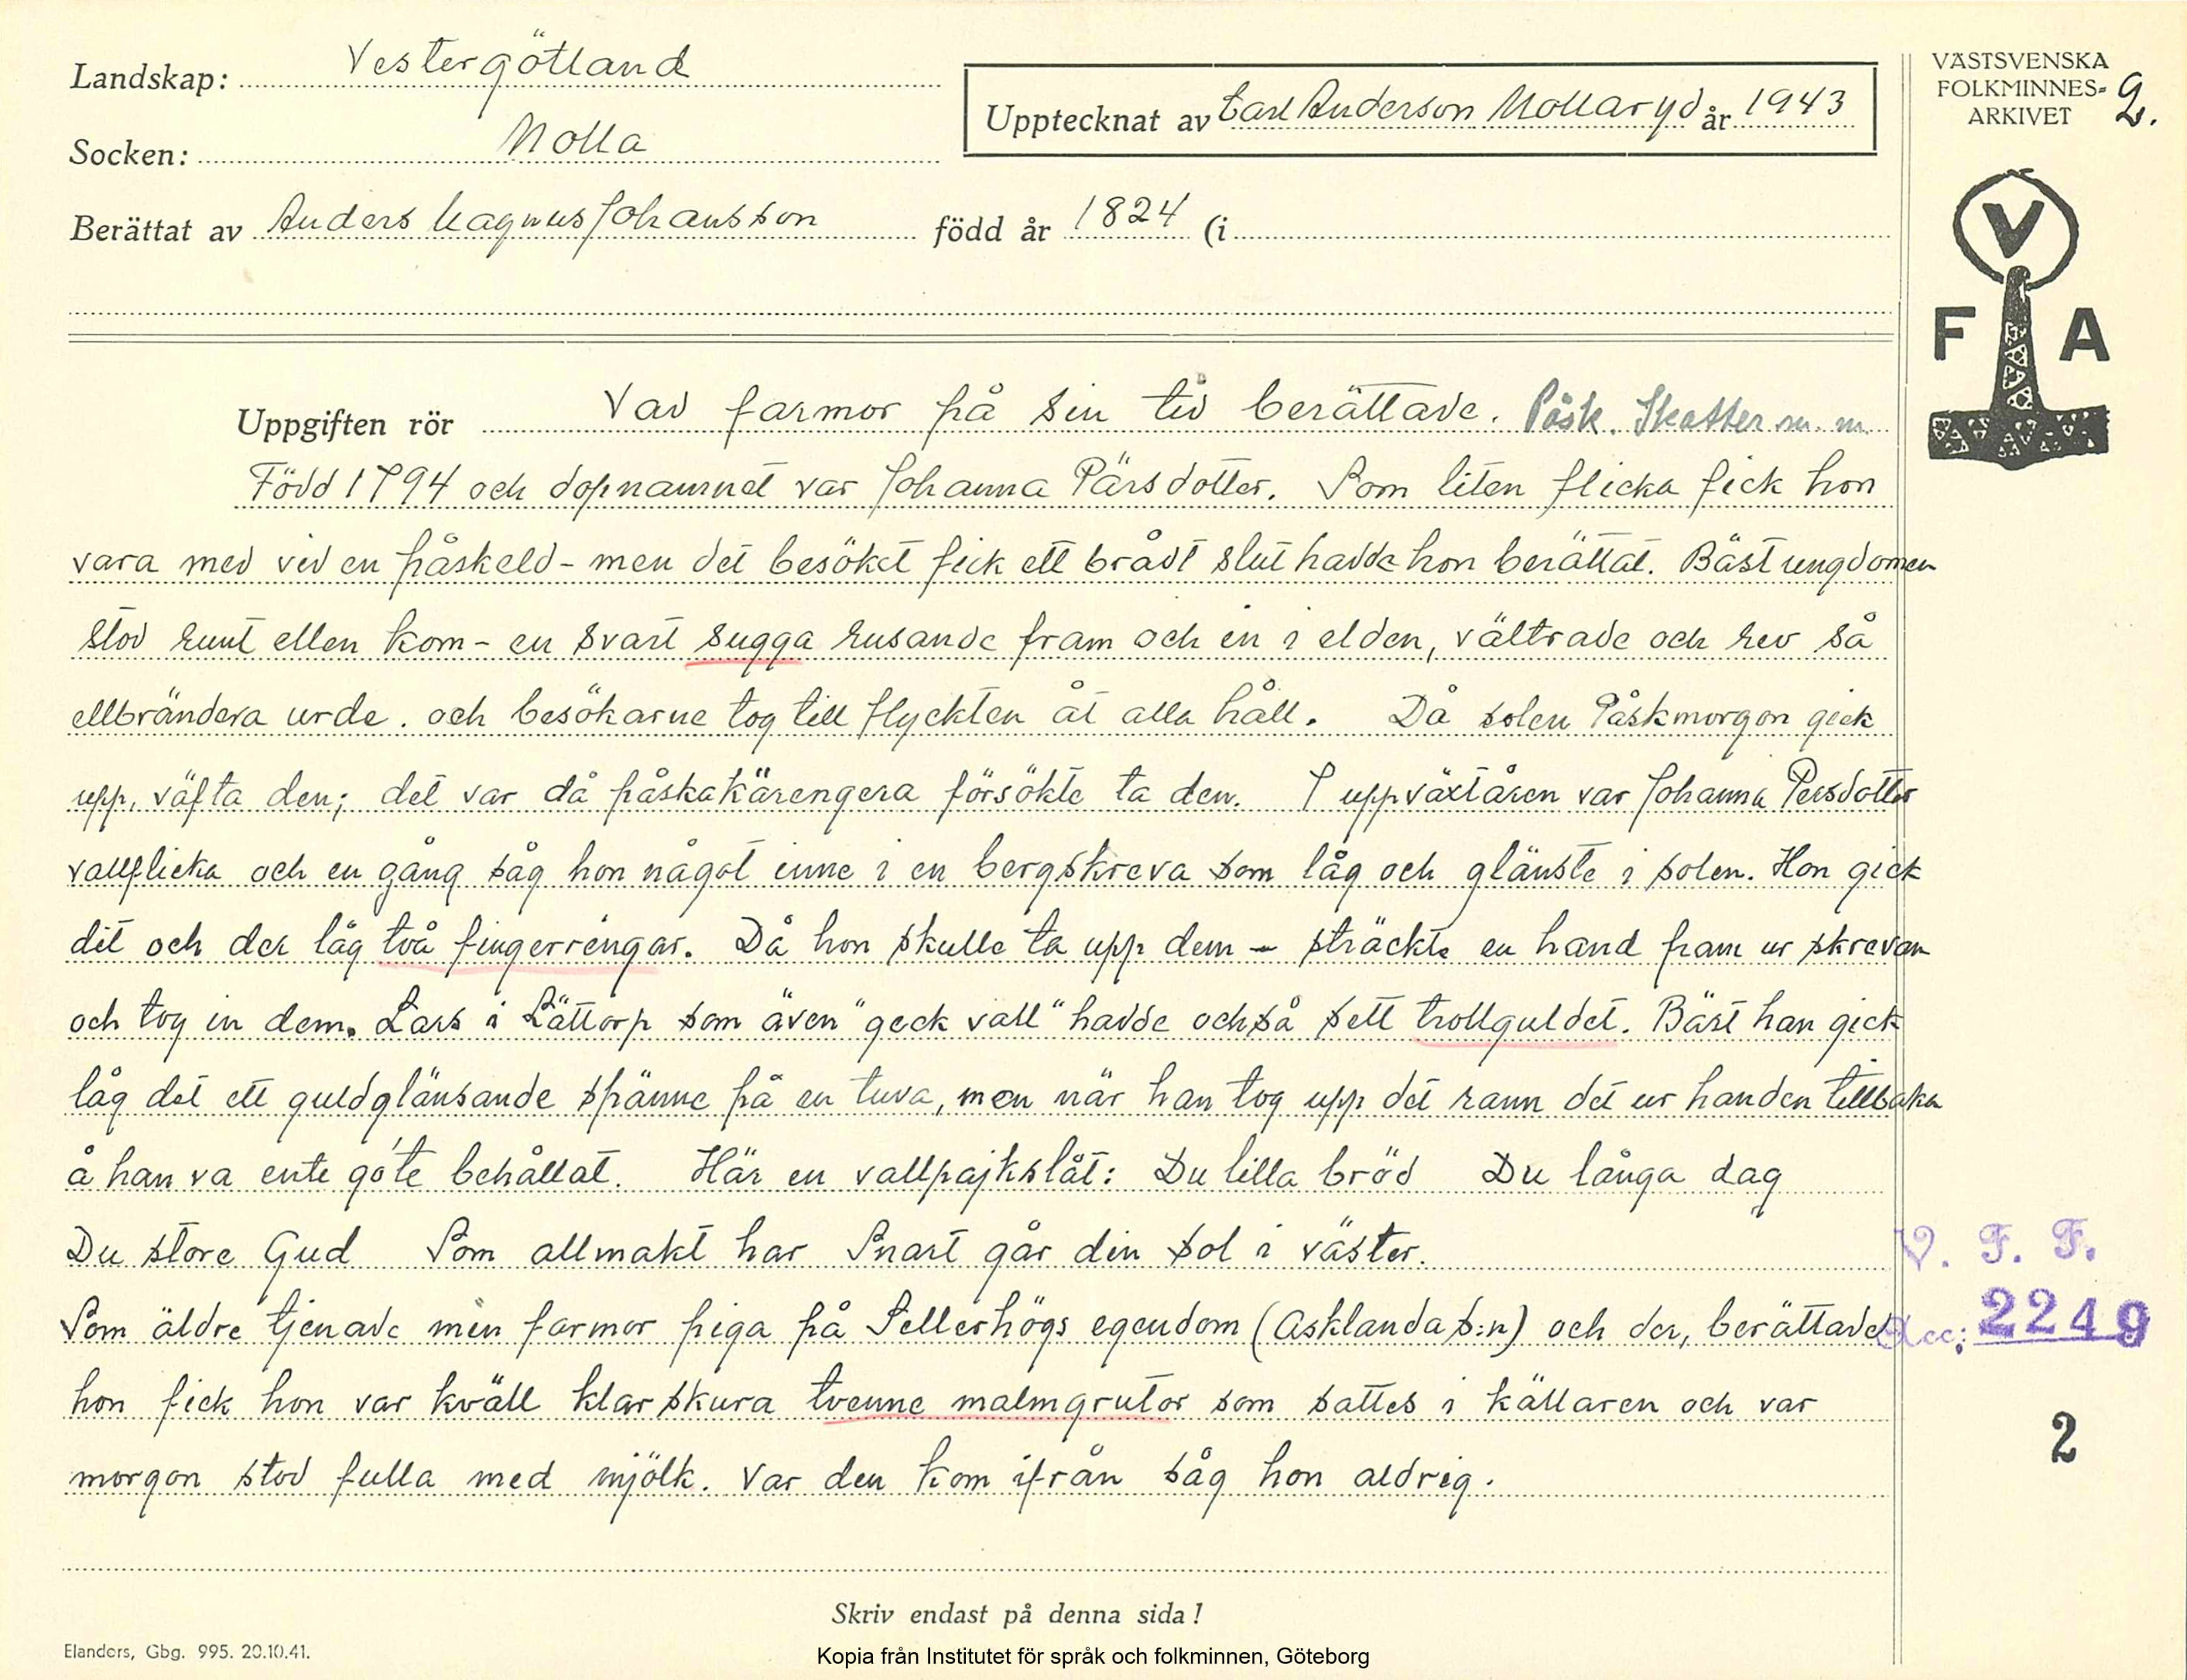 Landskap: Vestergötland
Socken: Molla
Berättat av Anders Magnus Johansson född år 1824 (i
Upptecknat av Carl Anderson Mollaryd år 1943
VÄSTSVENSKA
FOLKMINNES-
ARKIVET 2.
V
F A
Uppgiften rör Vad farmor på sin tid berättade. Påsk. Skatter m. m.
Född 1794 och dopnamnet var Johanna Pärsdotter. Som liten flicka fick hon
vara med vid en påskeld - men det besöket fick ett brådt slut hadde hon berättat. Bäst ungdomen
stod runt ellen kom - en svart sugga rusande fram och in i elden, vältrade och rev så
ellbrändera urde. och besökarne tog till flyckten åt alla håll. Då solen Påskmorgon gick
upp, väfta den; det var då påskakärengera försökte ta den. I uppväxtåren var Johanna Persdotter
vallflicka och en gång såg hon något inne i en bergskreva som låg och glänste i solen. Hon gick
dit och der låg två fingerringar. Då hon skulle ta upp dem - sträckte en hand fram ur skrevan
och tog in dem. Lars i Lättorp som även "geck vall" hadde också sett trollguldet. Bäst han gick
låg det ett guldglänsande spänne på en tuva, men när han tog upp det rann det ur handen tillbaka
å han va ente góte behållat. Här en vallpajkslåt: Du lilla bröd Du långa dag
Du store Gud Som allmakt har Snart går din sol i väster.
Som äldre tjenade min farmor piga på Sellerhögs egendom (Asklanda s:n) och der, berättade
hon fick hon var kväll klarskura tvenne malmgrutor som sattes i källaren och var
morgon stod fulla med mjölk. Var den kom ifrån såg hon aldrig.
V. F. F.
Acc: 2249
2
Skriv endast på denna sida!
Elanders, Gbg. 995. 20.10.41.
Kopia från Institutet för språk och folkminnen, Göteborg